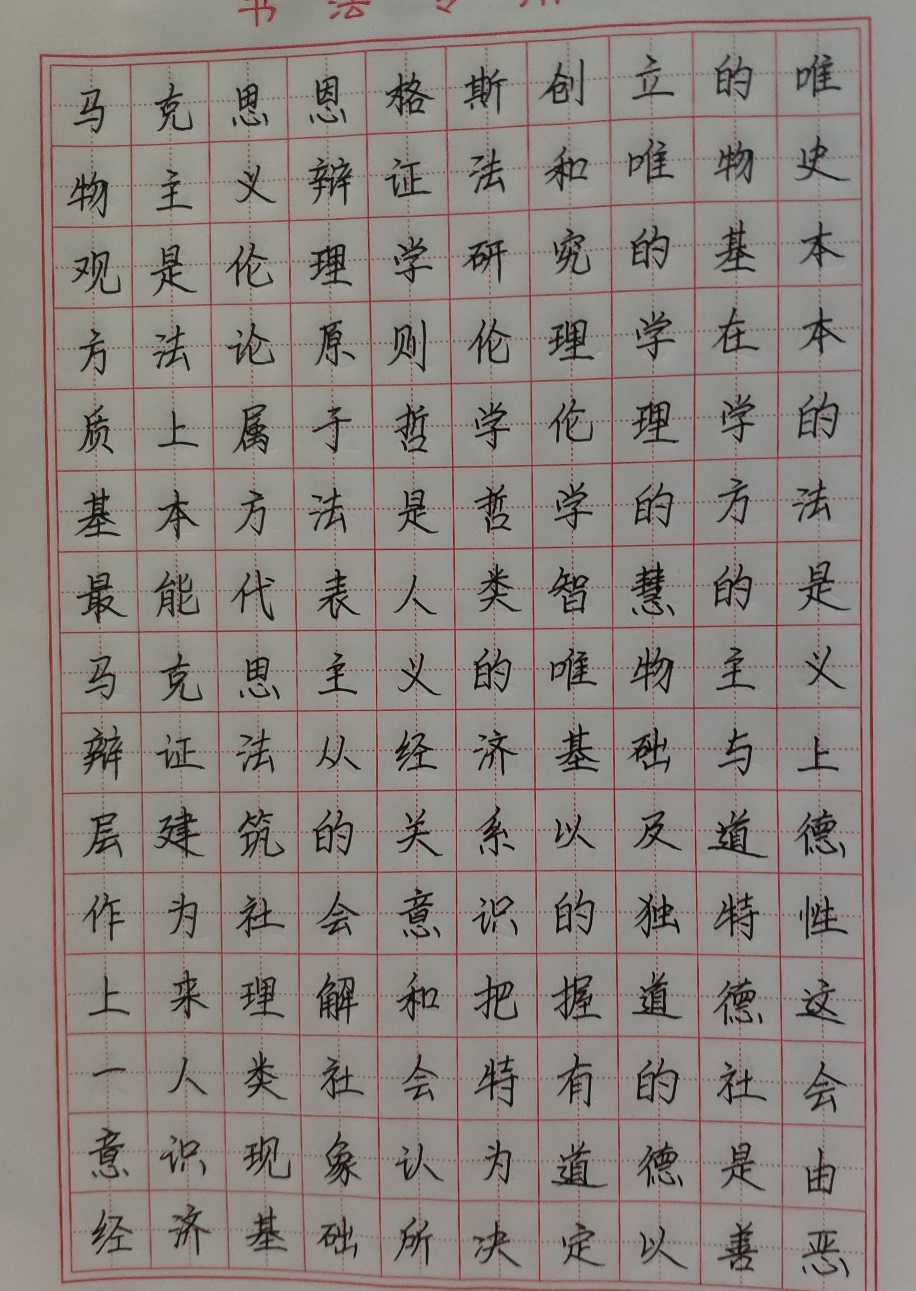 马克思恩格斯创立的唯
物主义辩证法和唯物史
观是伦理学研究的基本
方法论原则伦理学在本
质上属于哲学伦理学的
基本方法是哲学的方法
最能代表人类智慧的是
马克思主义的唯物主义
辩证法从经济基础与上
层建筑的关系以及道德
作为社会意识的独特性
上来理解和把握道德这
一人类社会特有的社会
意识现象认为道德是由
经济基础所决定以善恶